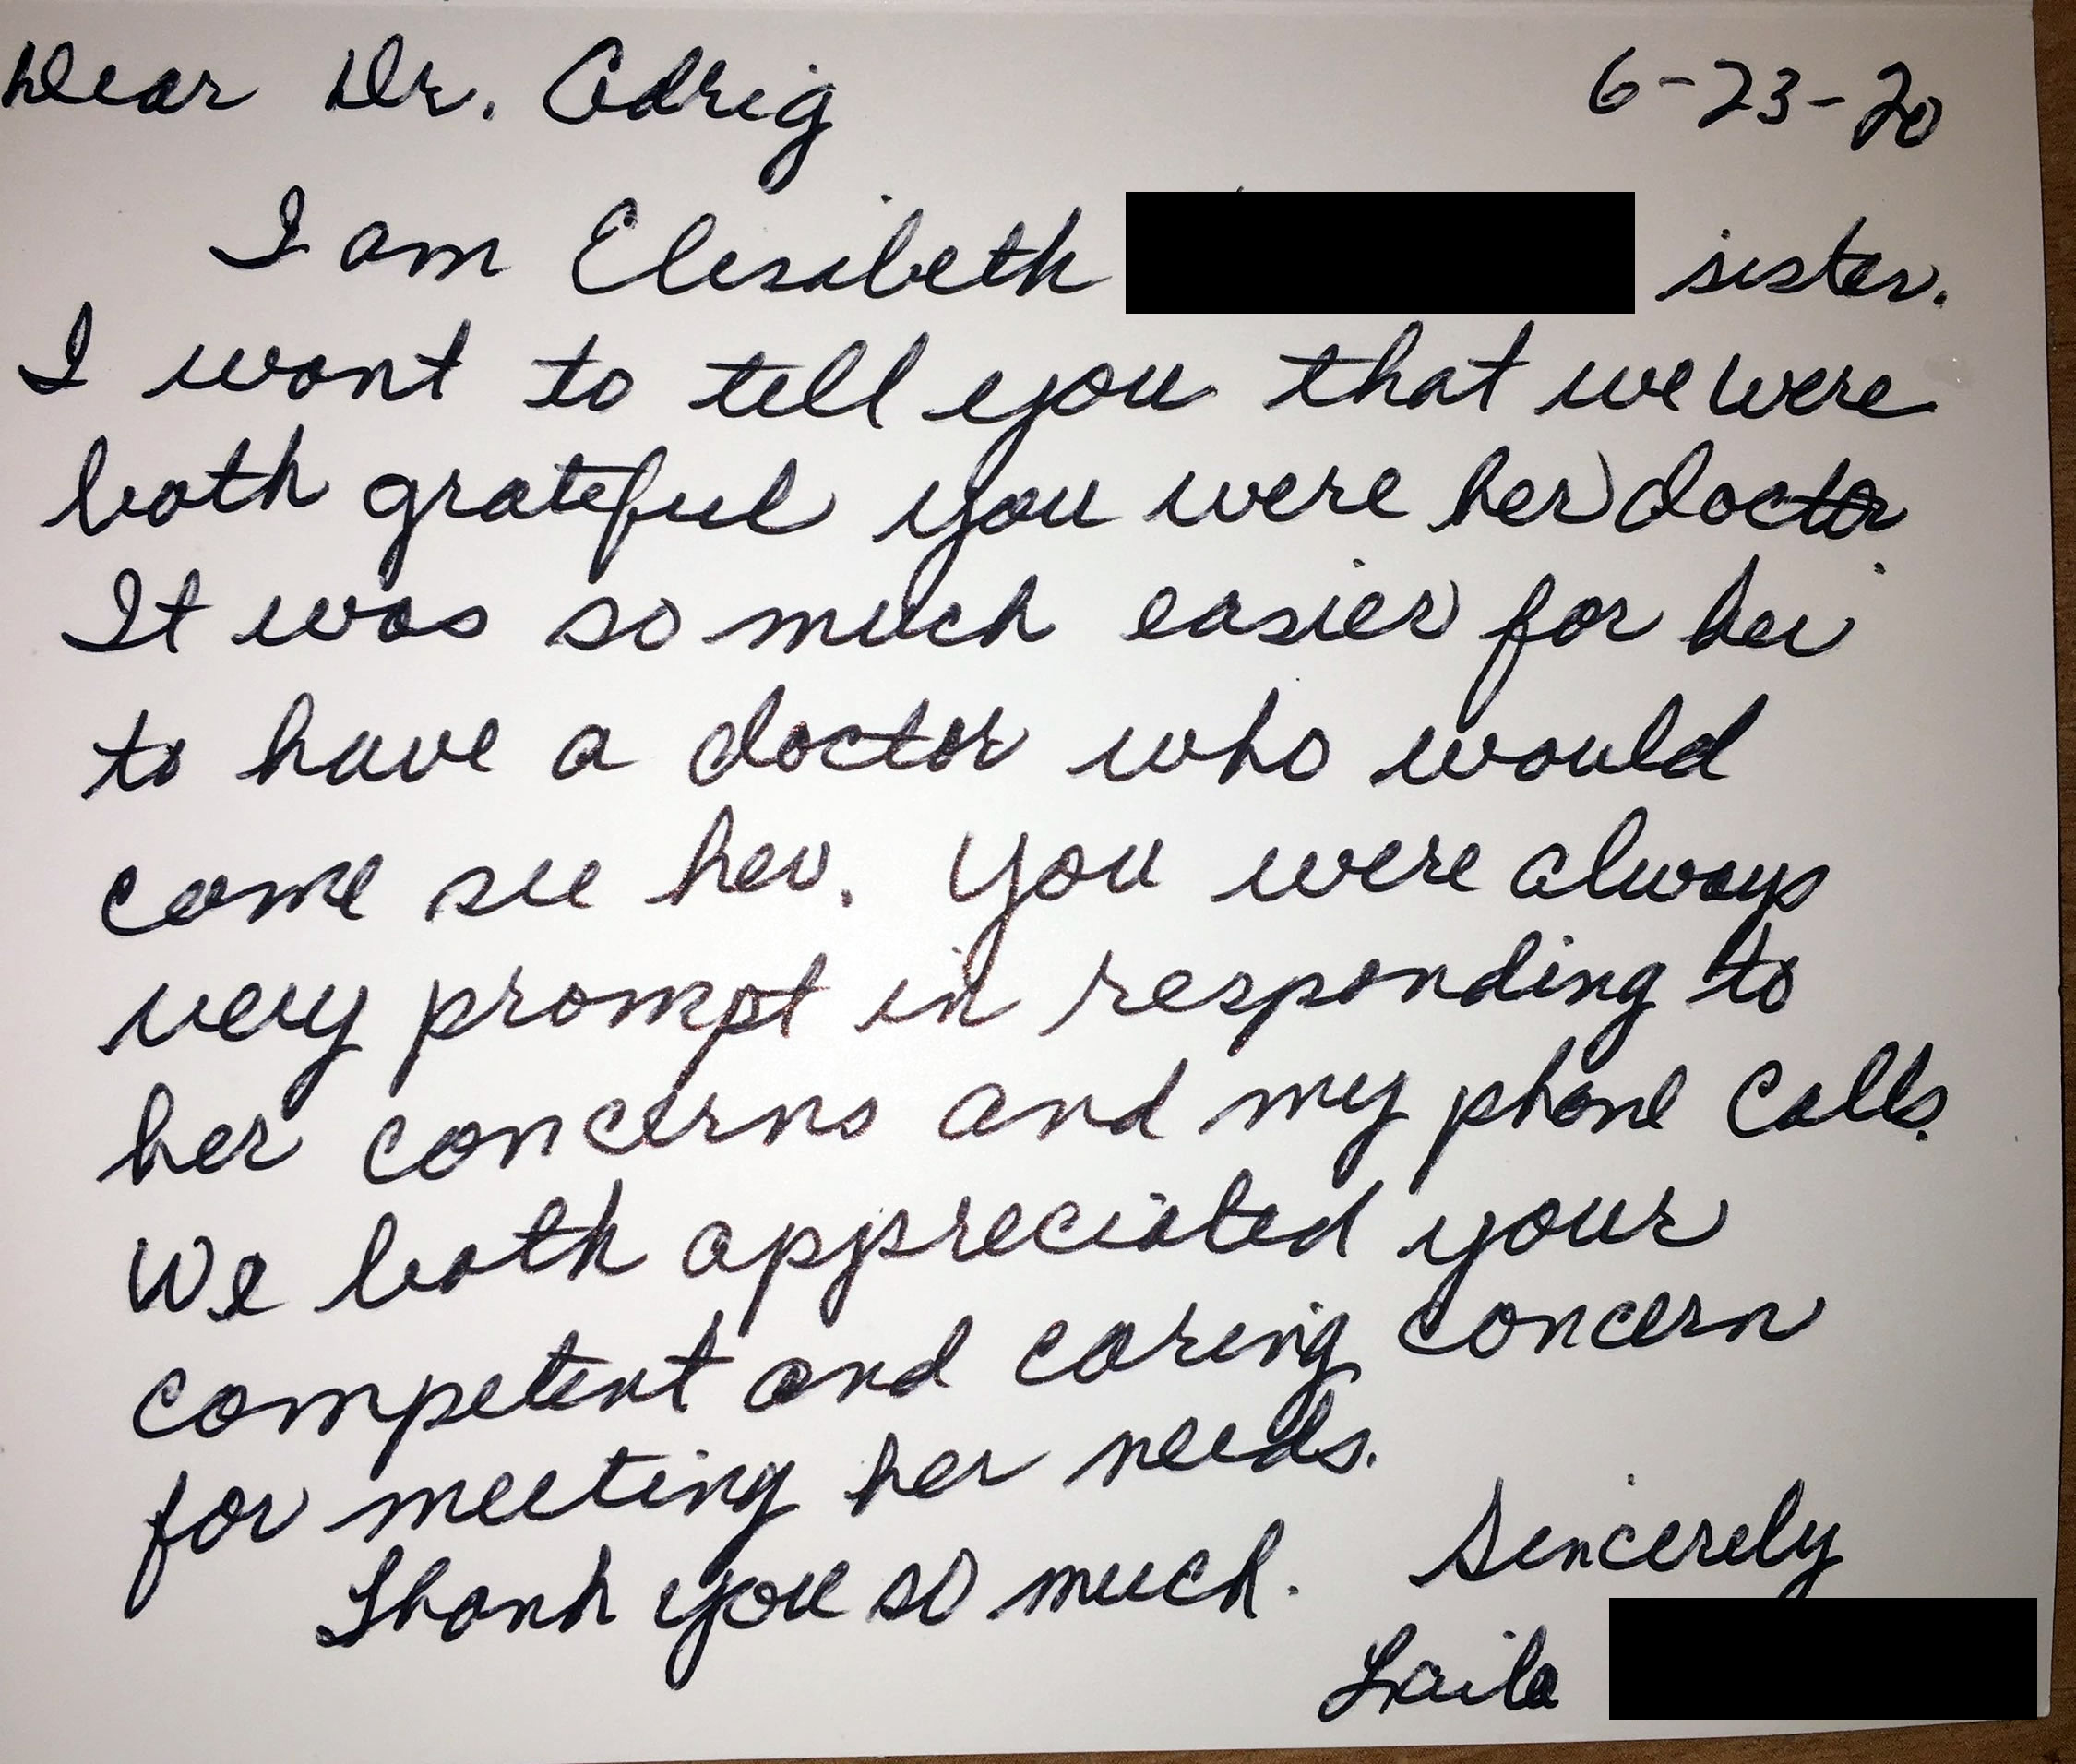 Dear Dr. Adrig 6-23-20
I am Elisabeth sister.
I want to tell you that we were
both grateful you were her doctor.
It was so much easier for her
to have a doctor who would
come see her. You were always
very prompt in responding to
her concerns and my phone calls.
We both appreciated your
competent and caring concern
for meeting her needs.
Thank you so much. Sincerely
Laila